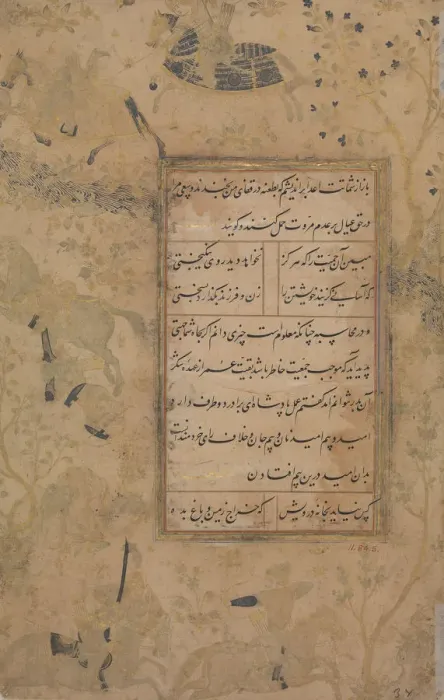 باز از شماتت اعدا بر اندیشم که بطعنه در قفای من بخندند و سعی مرا
در حق عیال بر عدم مروت حمل کنند و گویند
مبین آن بی حمیت را که هرگز نخواهد دید روی نیکبختی
که آسانی گزیند خویشتن را زن و فرزند بگذارد بسختی
و در محاسبه چنانکه معلوم است چیزی دانم اگر بجاه شما جهتی
پدید آید که موجب جمعیت خاطر باشد بقیت عمر از عهده شکر
آن بدر نتوانم آمد گفتم عمل پادشاه ای برادر دو طرف دارد
امید و بیم امید نان و بیم جان و خلاف رای خردمندانست
بدان امید درین بیم افتادن
کس نیاید بخانه درویش که خراج زمین و باغ بده